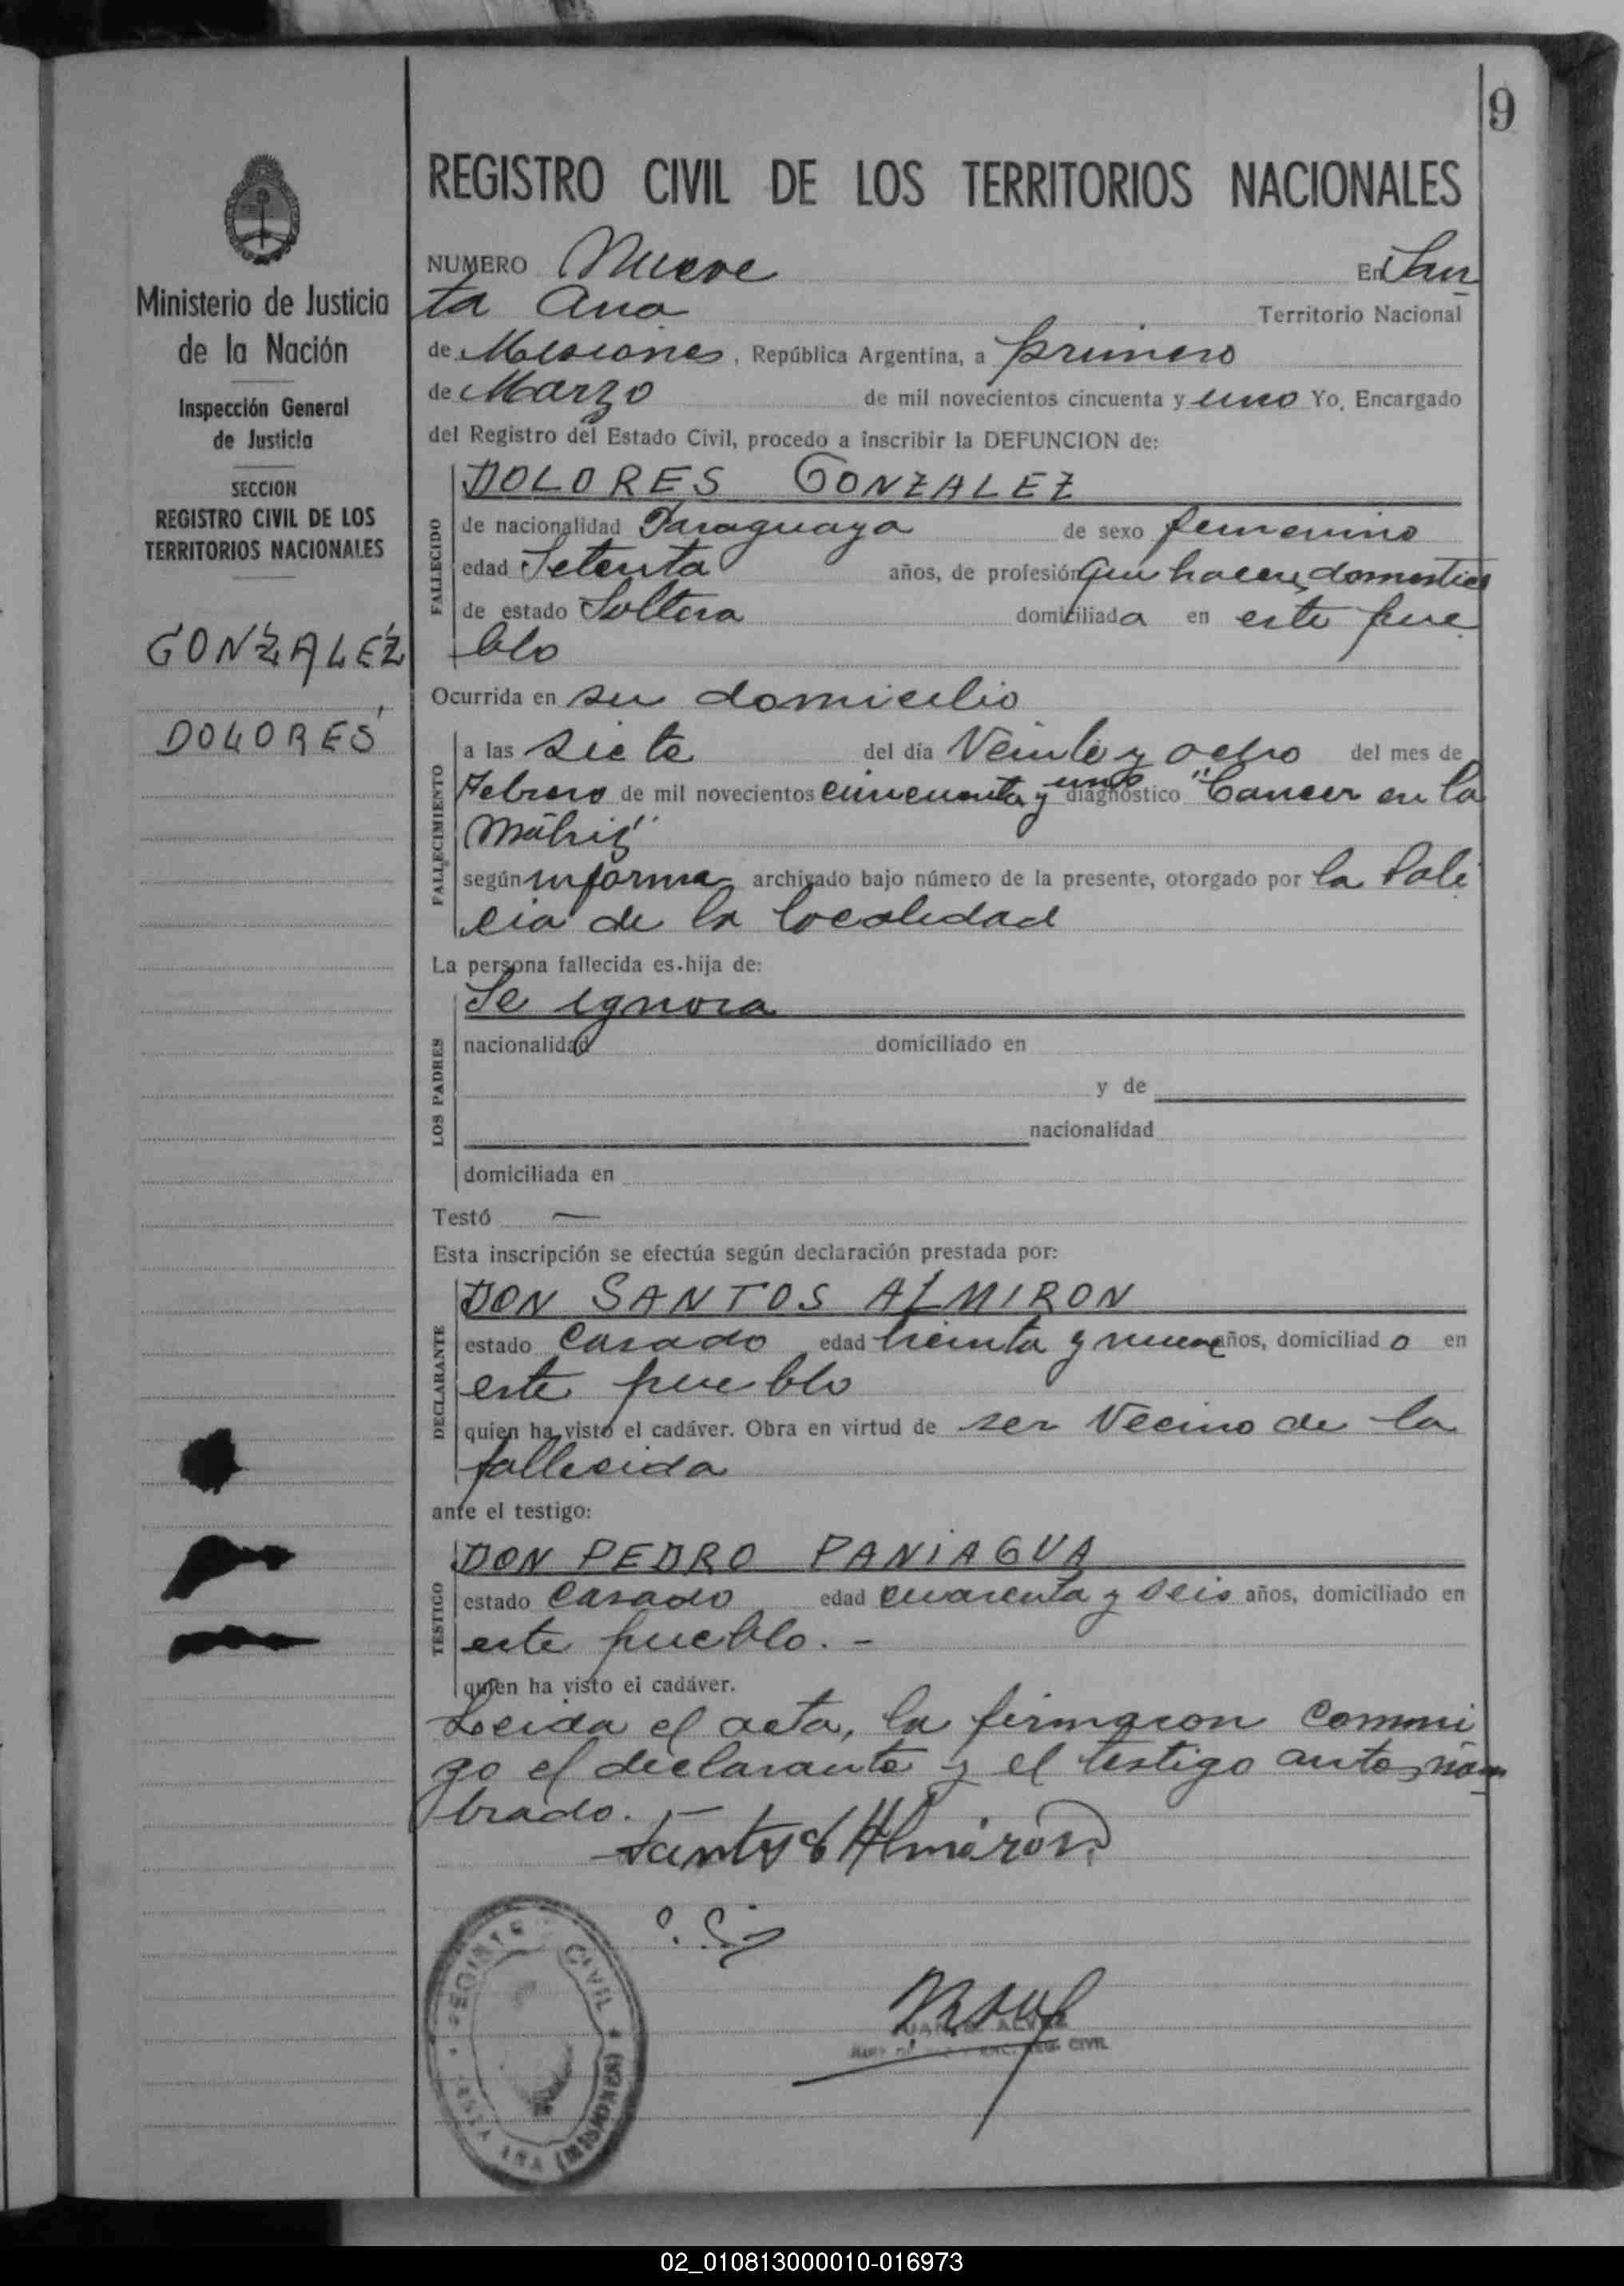 9
REGISTRO CIVIL DE LOS TERRITORIOS NACIONALES
Ministerio de Justicia
de la Nación
Inspección General
de Justicia
SECCION
REGISTRO CIVIL DE LOS
TERRITORIOS NACIONALES
GONZALEZ
DOLORES
NUMERO Nueve En San
ta Ana Territorio Nacional
de Misiones, República Argentina, a primero
de Marzo de mil novecientos cincuenta y uno Yo, Encargado
del Registro del Estado Civil, procedo a inscribir la DEFUNCION de:
FALLECIDO
DOLORES GONZALEZ
de nacionalidad Paraguaya de sexo femenino
edad Setenta años, de profesión domestico
de estado Soltera domiciliada en este pue
blo
Ocurrida en su domicilio
FALLECIMIENTO
a las siete del día Veinte y ocho del mes de
Febrero de mil novecientos cincuenta y uno diagnóstico "Cancer en la
Mátriz"
según informe archivado bajo número de la presente, otorgado por la Poli
cia de la localidad
La persona fallecida es hija de:
LOS PADRES
Se ignora
nacionalidad domiciliado en
y de
nacionalidad
domiciliada en
Testó —
Esta inscripción se efectúa según declaración prestada por:
DECLARANTE
DON SANTOS ALMIRON
estado Casado edad treinta y nueve años, domiciliado en
este pueblo
quien ha visto el cadáver. Obra en virtud de ser Vecino de la
fallecida
ante el testigo:
TESTIGO
DON PEDRO PANIAGUA
estado Casado edad cuarenta y seis años, domiciliado en
este pueblo. -
quien ha visto el cadáver.
Leida el acta, la firmaron conmi
go el declarante y el testigo antes nom
brado. -
Santos Almirón
REGISTRO CIVIL * SANTA ANA (MISIONES)
ENC. REG. CIVIL
02_010813000010-016973